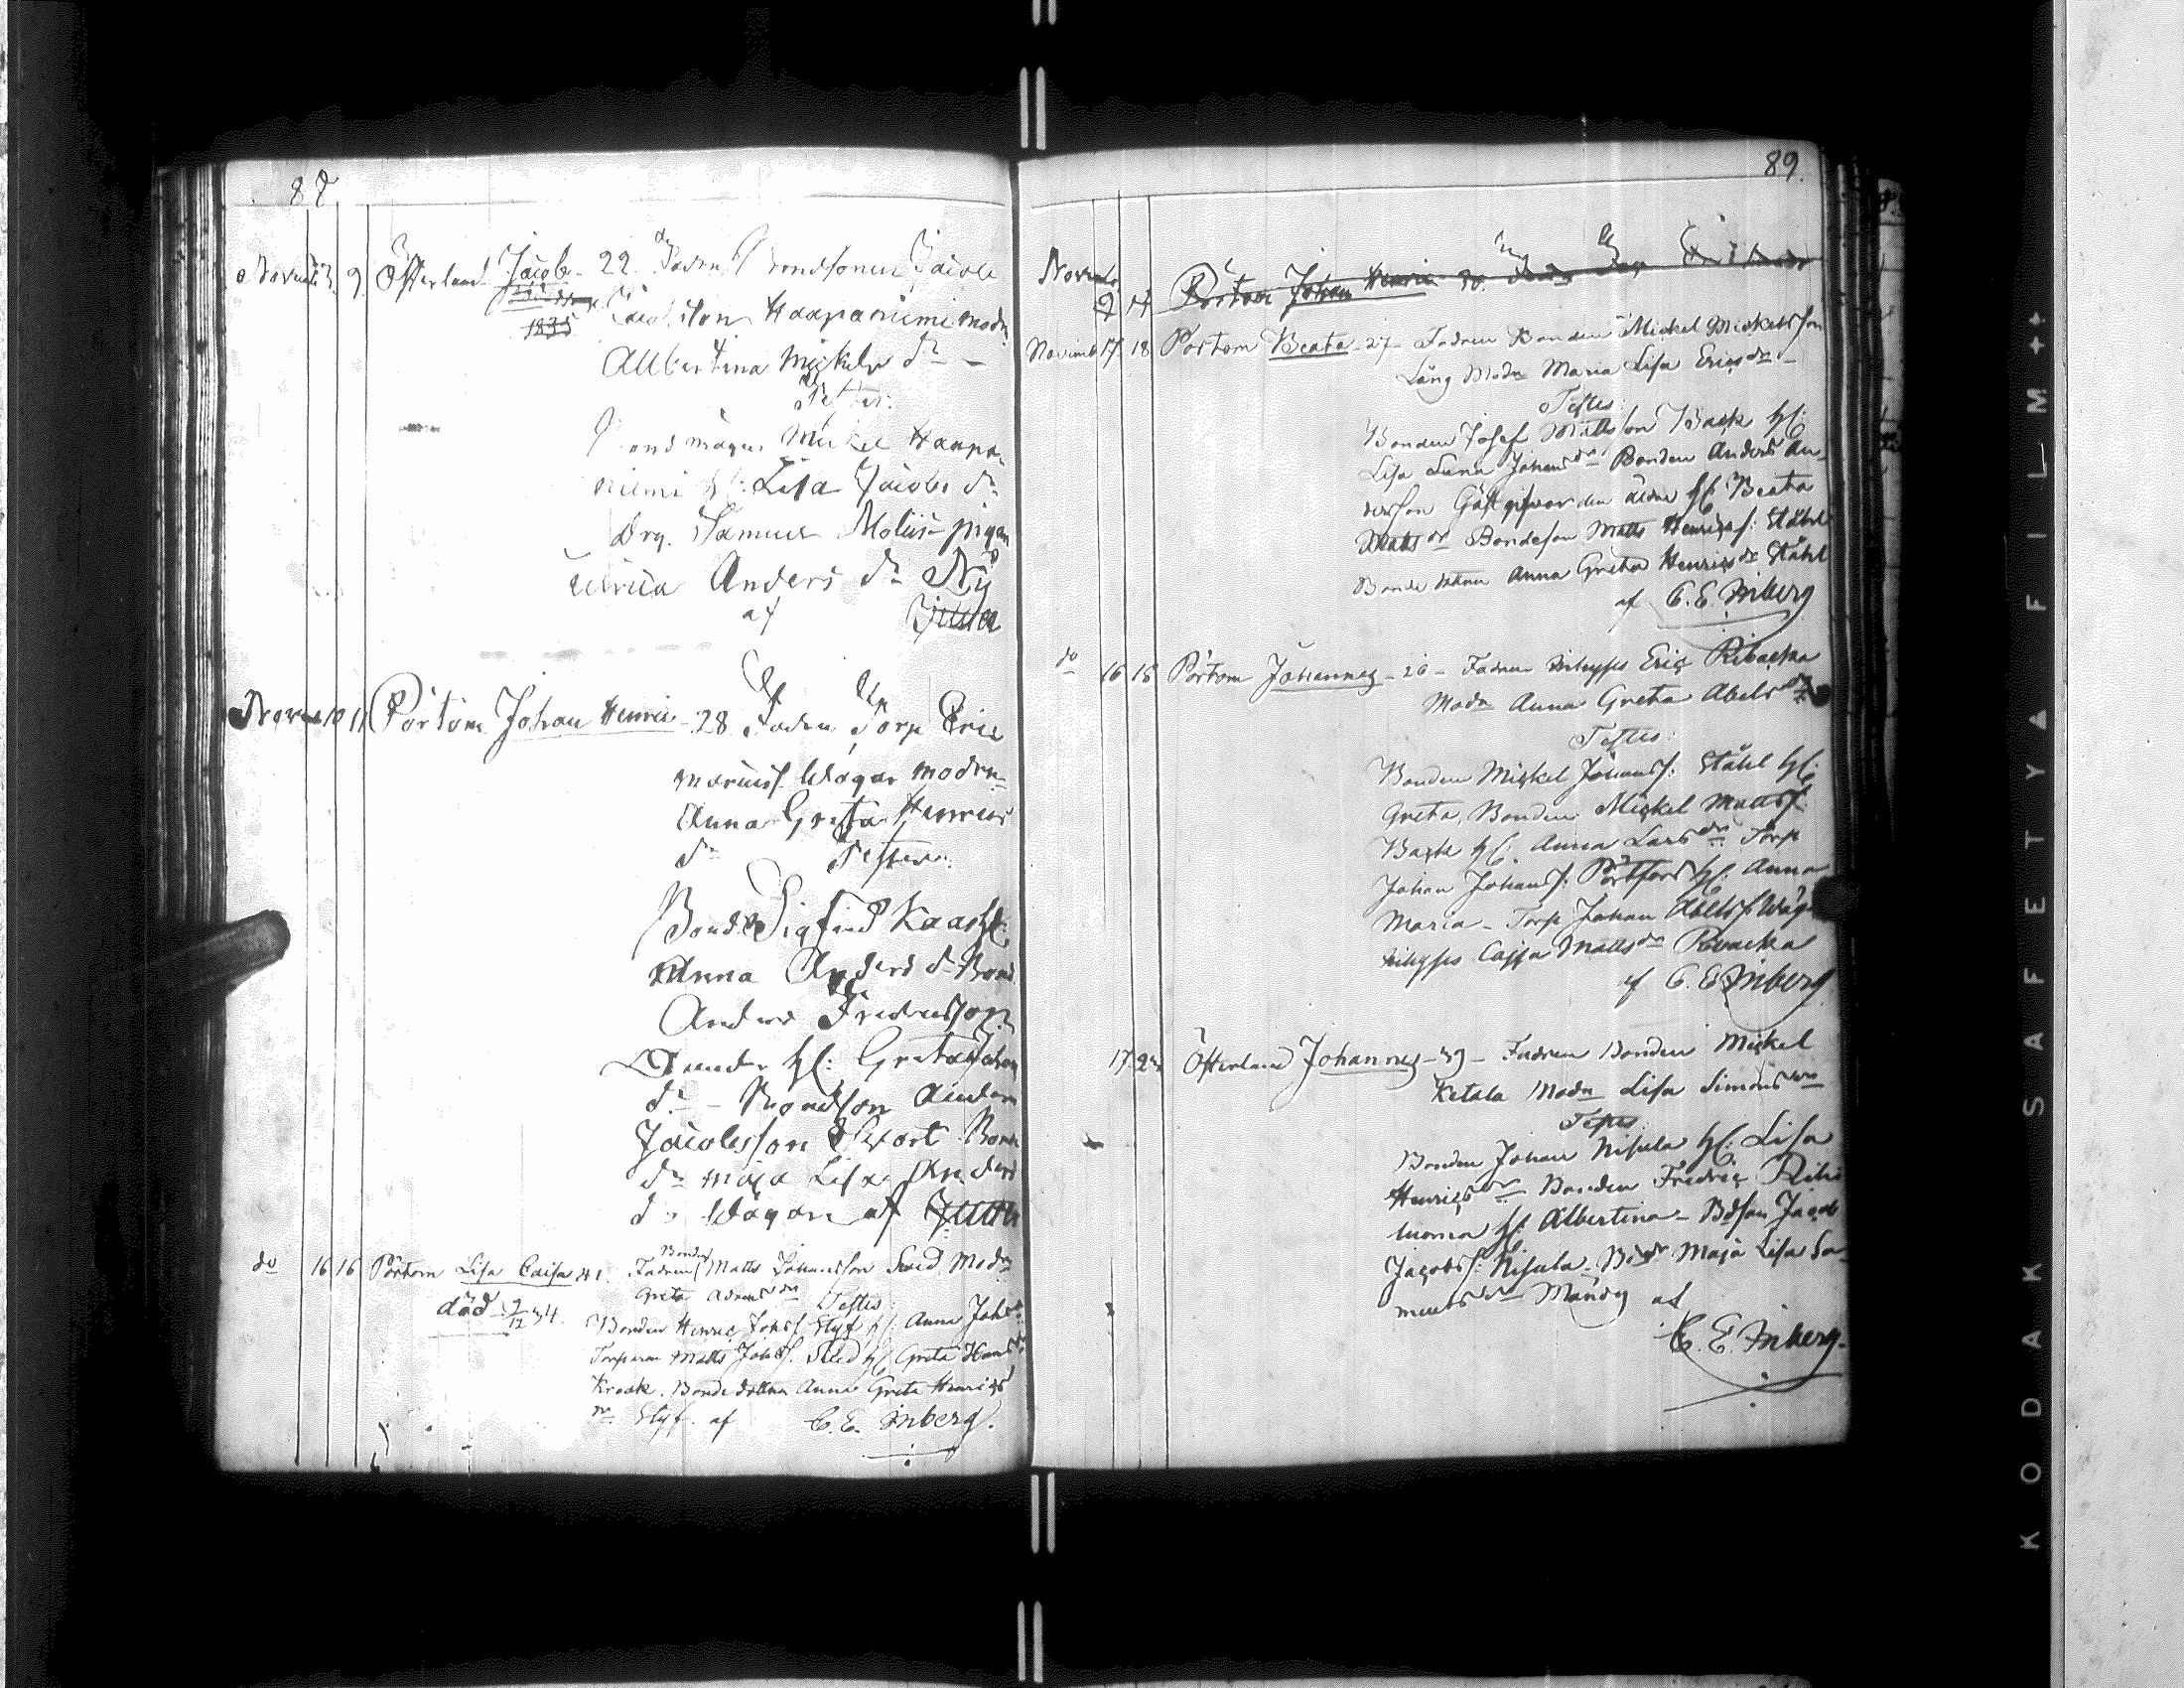 88
Novemb 9 Österland Jacob 22 Fadren Bondsonen Jacob
1835 Jacobsson Haapaniemi Modn
Albertina Mickels dr
Testes:
Bond mågen Mickel Haapa-
niemi h: Lisa Jacobs dr
Drg. Samuel Moliis pigan
Ulrica Anders dr Ny
af
Novemb 10 11 Pörtom Johan Henric 28 Fadren Torp Eric
Wägar modren
Anna Greta Henrics
dr Testes:
Bond Sigfrid Kaas h:
Anna Anders dr Bond
Anders Fredricsson
h: Greta Johan
dr - Bondson Anders
Jacobsson Svart Bond
dr Maja Lisa Anders
dr Wägar af
do 16 16 Pörtom Lisa Caisa 41. Fadren Bonden Matts Johansson Smed Modn
Greta Adams dr Testes:
död 2/12 34. Bonden Henric Johss. Styf h: Anna Johs dr
Torparen Matts Johss. Smed h: Greta Hans dr
Krook. Bonde dottren Anna Greta Henrics
dr Styf. af C. E. Inberg.
89.
Novemb
9 14 Pörtom Johan Henric
Novemb 17 18 Pörtom Beata 27 Fadren Bonden Mickel Mickelsson
Lång Modn Maria Lisa Erics dr
Testes:
Bonden Josef Mattsson Back h:
Lisa Lena Johans dr Bonden Anders An-
dersson Gästgifvar den äldre h: Beata
Matts dr Bondeson Matts Henricss: Ståhl
Bonde dottren Anna Greta Henrics dr Ståhl
af C. E. Inberg
do 16 18 Pörtom Johannes 26 - Fadren Inhyses Eric Ribacka
Modn Anna Greta Abels dr
Testes:
Bonden Mickel Johanss: Ståhl h:
Greta, Bonden Mickel Mattss:
Back h: Anna Lars dr Torp
Johan Johanss: Pörtfors h: Anna
Maria - Torp Johan Abelss Wägar
inhyses Cajsa Matts dr Ribacka
af C. E. Inberg
17 24 Österland Johannes - 39 - Fadren Bonden Mickel
Ketala Modn Lisa Simons dr
Testes:
Bonden Johan Nisula h: Lisa
Henrics dr Bonden Fredric Rihi
luoma h: Albertina - Bdson Jacob
Jacobss: Nisula - Bdr Maja Lisa Sa-
muels dr Mandy af
C. E. Inberg.
KODAK SAFETY FILM